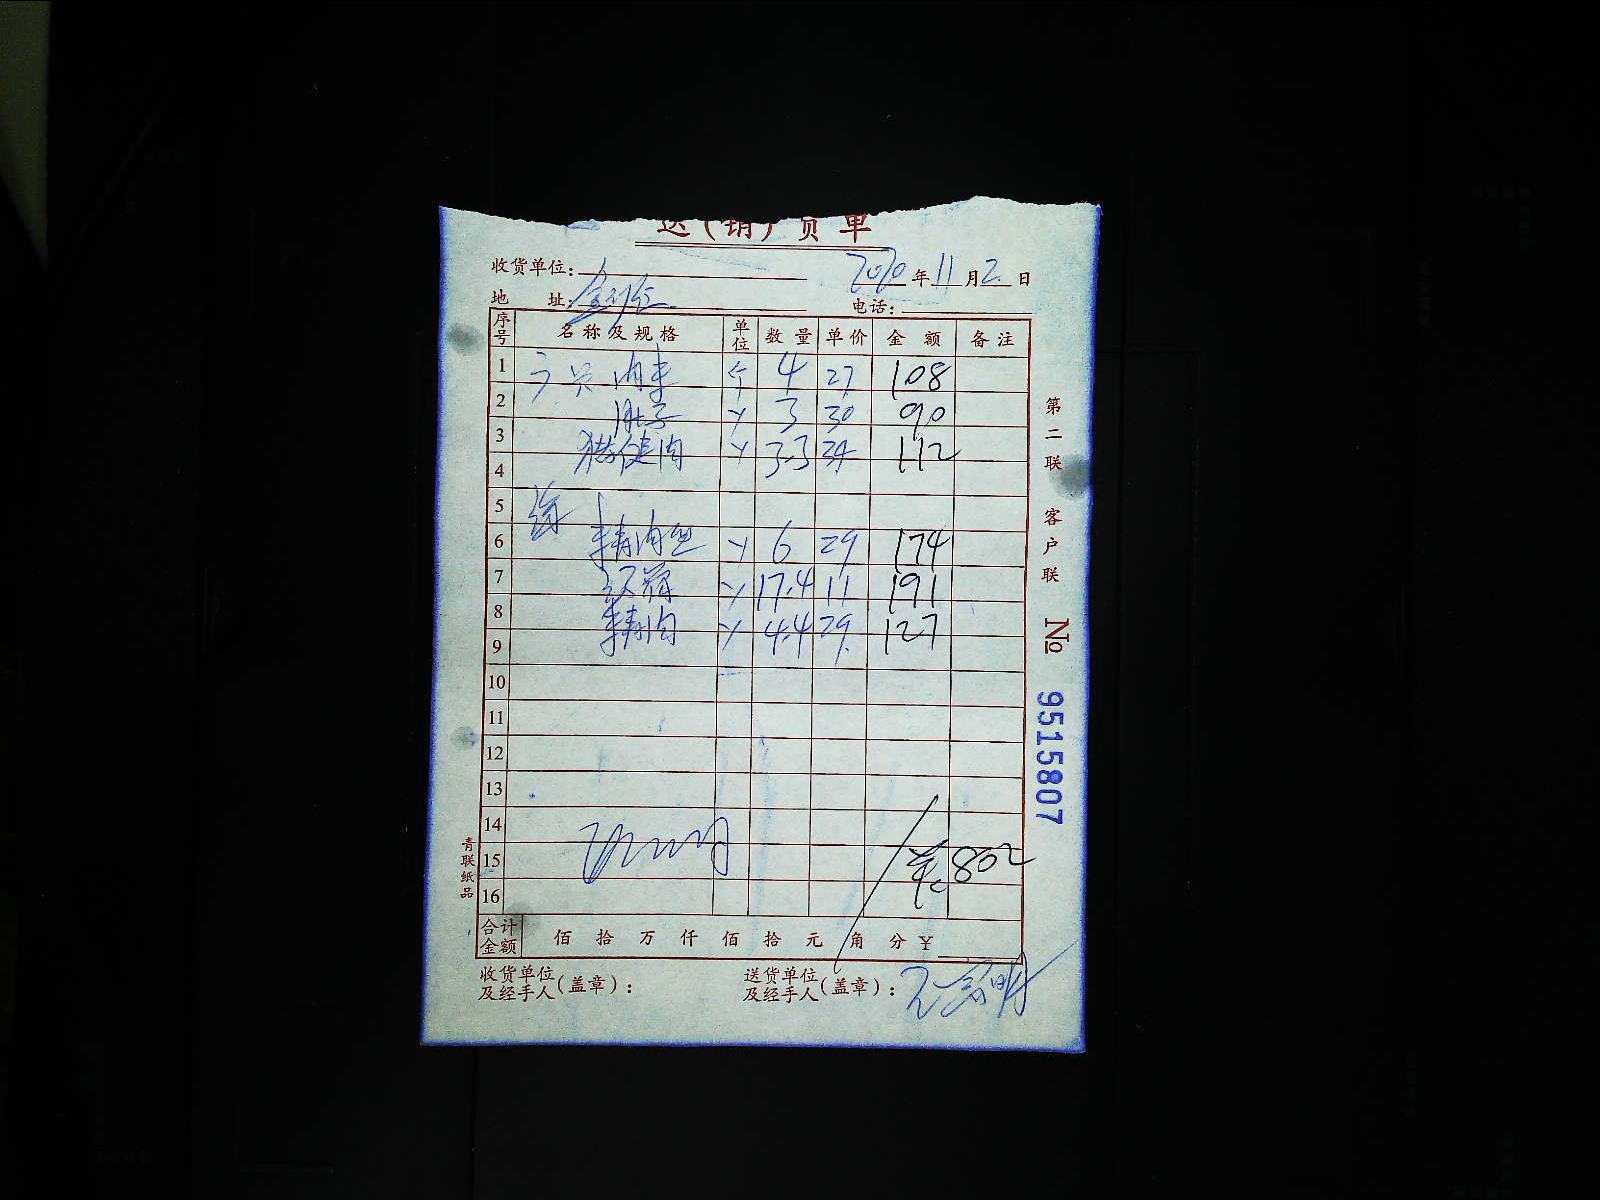 送(销)货单
收货单位: 2020年11月2日
地 址: 电话:
序号 名称及规格 单位 数量 单价 金额 备注
1 肉末 个 4 27 108
2 肚子 3 30 90
3 猪健肉 3.3 34 112
4
5
6 精肉丝 6 29 174
7 汉排 17.4 11 191
8 精肉 4.4 29 127
9
10
11
12
13
14
15 802
16
合计金额 佰 拾 万 仟 佰 拾 元 角 分 ¥
收货单位及经手人(盖章): 送货单位及经手人(盖章):
第二联 客户联 No 9515807
青联纸品